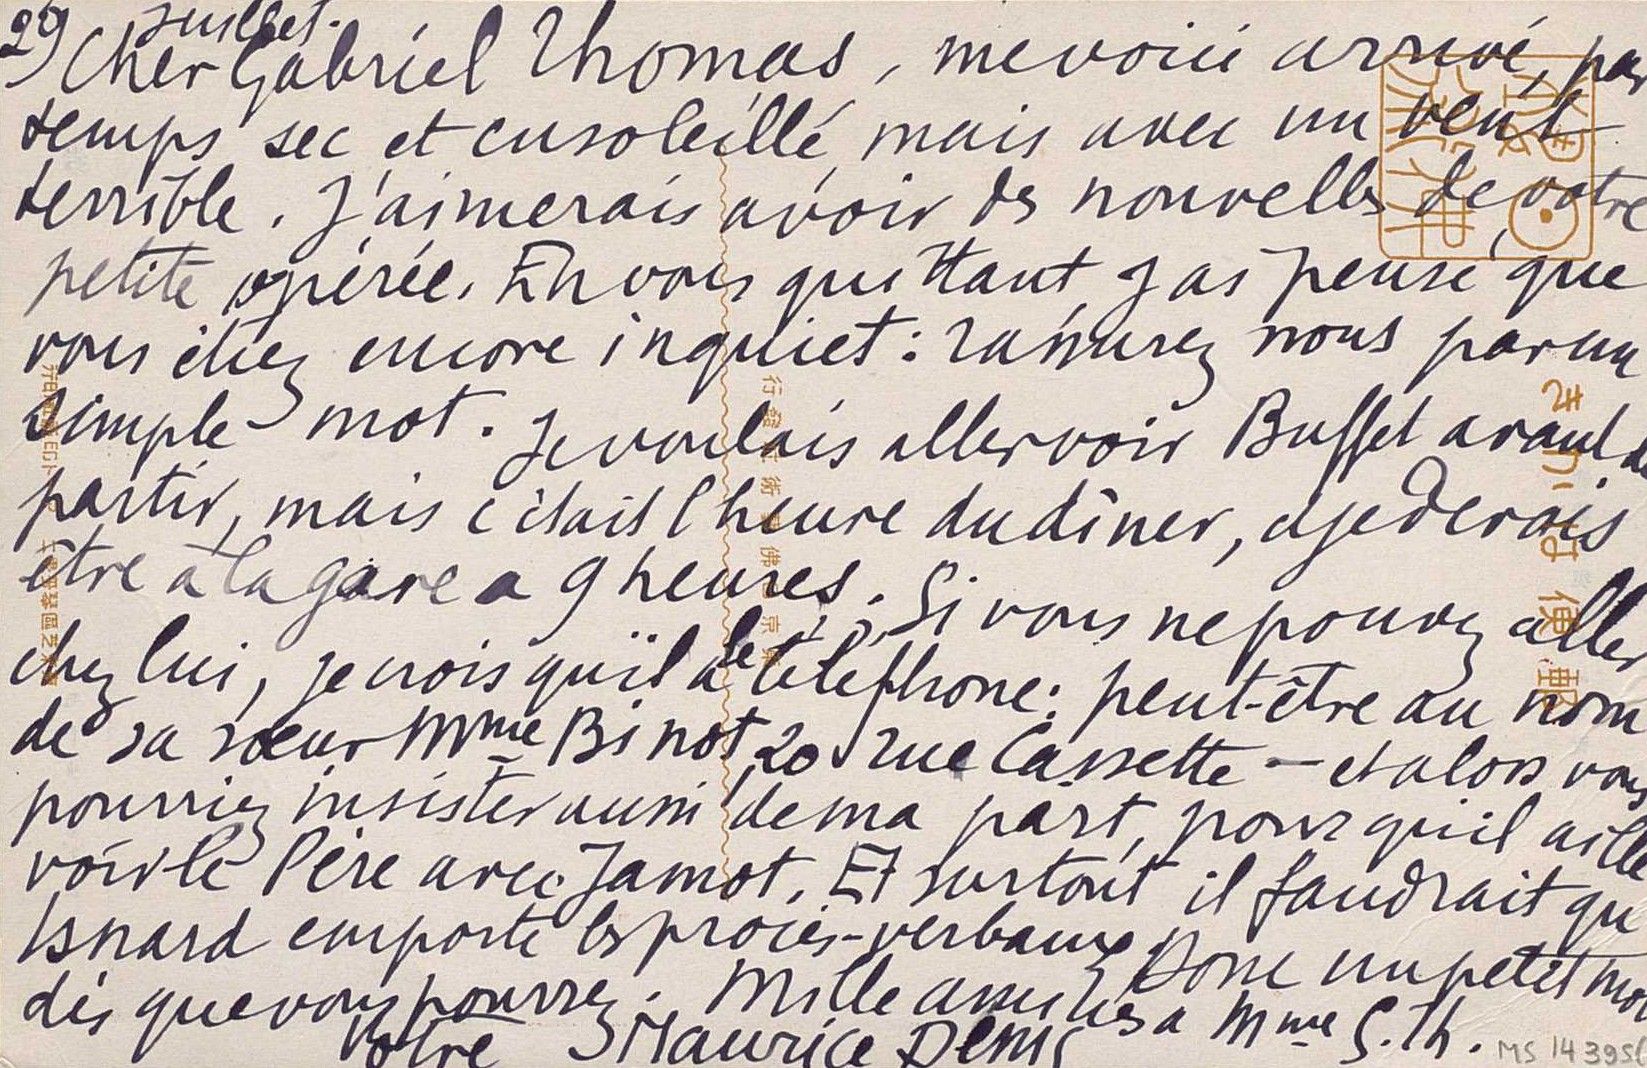 29 juillet.
Cher Gabriel Thomas, me voici arrivé, par
temps sec et ensoleillé mais avec un vent
terrible. J'aimerais avoir des nouvelles de votre
petite opérée. En vous quittant j'ai pensé que
vous étiez encore inquiet : rassurez nous par un
simple mot. Je voulais aller voir Buffet avant de
partir, mais c'était l'heure du dîner, et je devais
être à la gare a 9 heures. Si vous ne pouvez aller
chez lui, je crois qu'il a le téléphone : peut-être au nom
de sa sœur Mme Binot 20 rue Cassette — et alors vous
pourriez insister aussi de ma part, pour qu'il aille
voir le Père avec Jamot. Et surtout il faudrait que
Isnard emporte les procès-verbaux. Donc un petit mot
dès que vous pourrez. Mille amitiés a Mme G. Th.
Votre Maurice Denis
MS 14 395